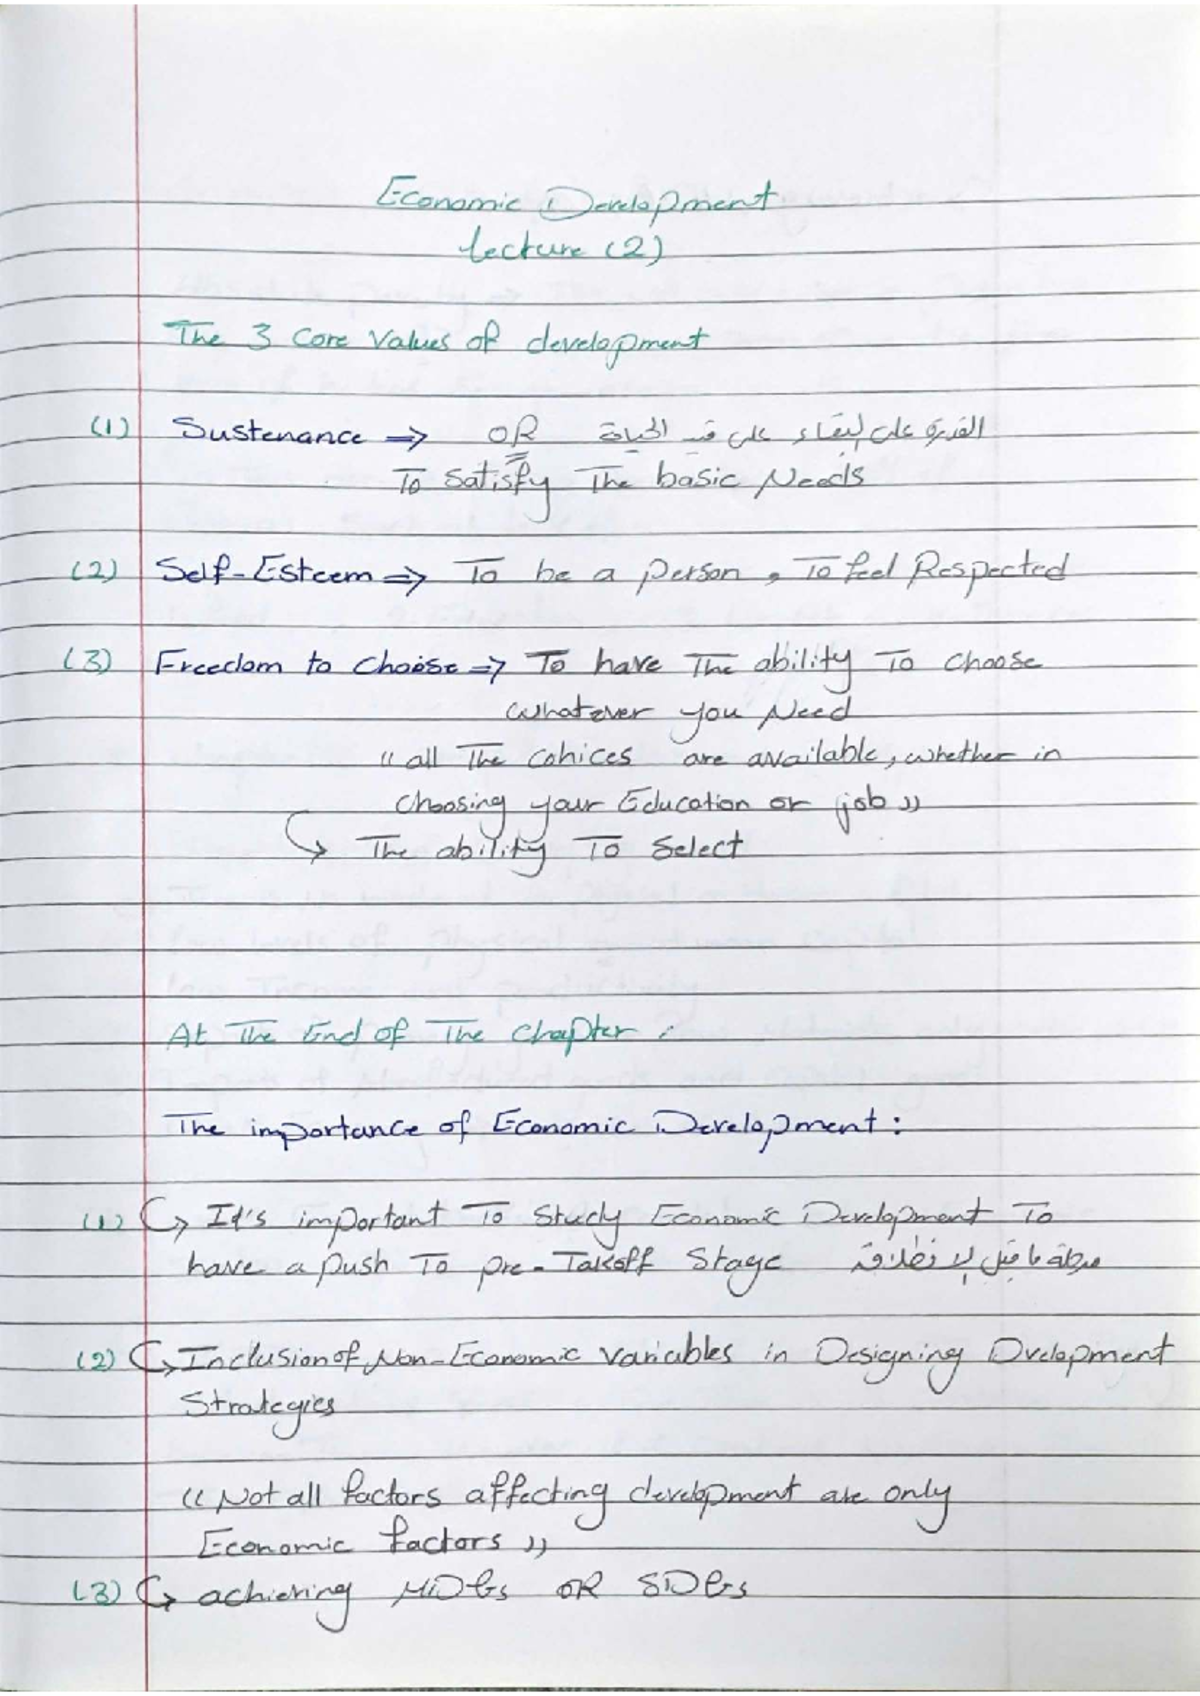 Economic Development
Lecture (2)
The 3 Core Values of development
(1) Sustenance => OR القدرة على البقاء على قيد الحياة
To Satisfy The basic Needs
(2) Self-Esteem => To be a person, To feel Respected
(3) Freedom to choose => To have The ability To choose
whatever you Need
(( all The cohices are available, whether in
choosing your Education or job ))
↳ The ability To Select
At The End of The chapter :
The importance of Economic Development :
(1) ↳ It's important To Study Economic Development To
have a push To pre-Takoff Stage مرحلة ما قبل الانطلاقة
(2) ↳ Inclusion of Non-Economic variables in Designing Dvelopment
Strategies
(( Not all factors affecting development are only
Economic factors ))
(3) ↳ achieving MDGs OR SDGs